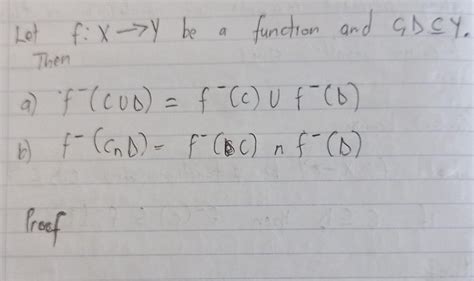 Let f: X → Y be a function and C,D ⊆ Y.
Then
a) f⁻(C∪D) = f⁻(C) ∪ f⁻(D)
b) f⁻(C∩D) = f⁻(C) ∩ f⁻(D)
Proof